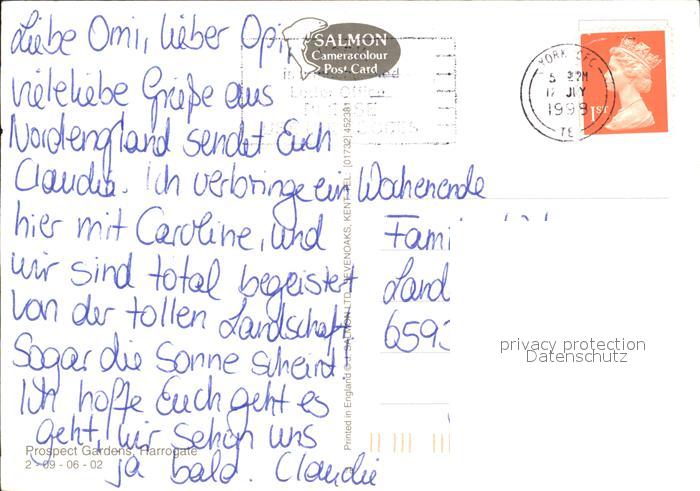 Liebe Omi, lieber Opi,
viele liebe Grüße aus
Nordengland sendet Euch
Claudia. Ich verbringe ein Wochenende
hier mit Caroline, und
wir sind total begeistert
von der tollen Landschaft
Sogar die Sonne scheint
Ich hoffe Euch geht es
geht, wir sehen uns
ja bald. Claudia
Prospect Gardens, Harrogate
2 - 09 - 06 - 02
SALMON
Cameracolour
Post Card
Printed in England © J. SALMON LTD., SEVENOAKS, KENT. TEL: (01732) 452381
YORK
1998
1ST
Fami
Land
privacy protection
Datenschutz